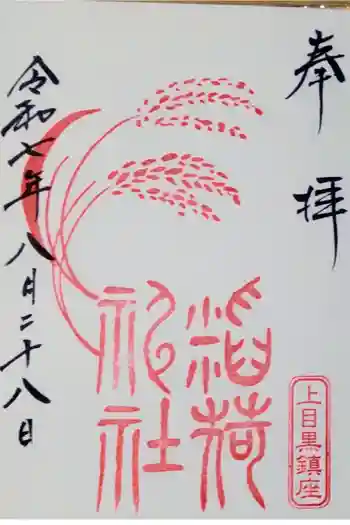 奉拝
上目黒鎮座
稲荷
神社
令和七年八月二十八日